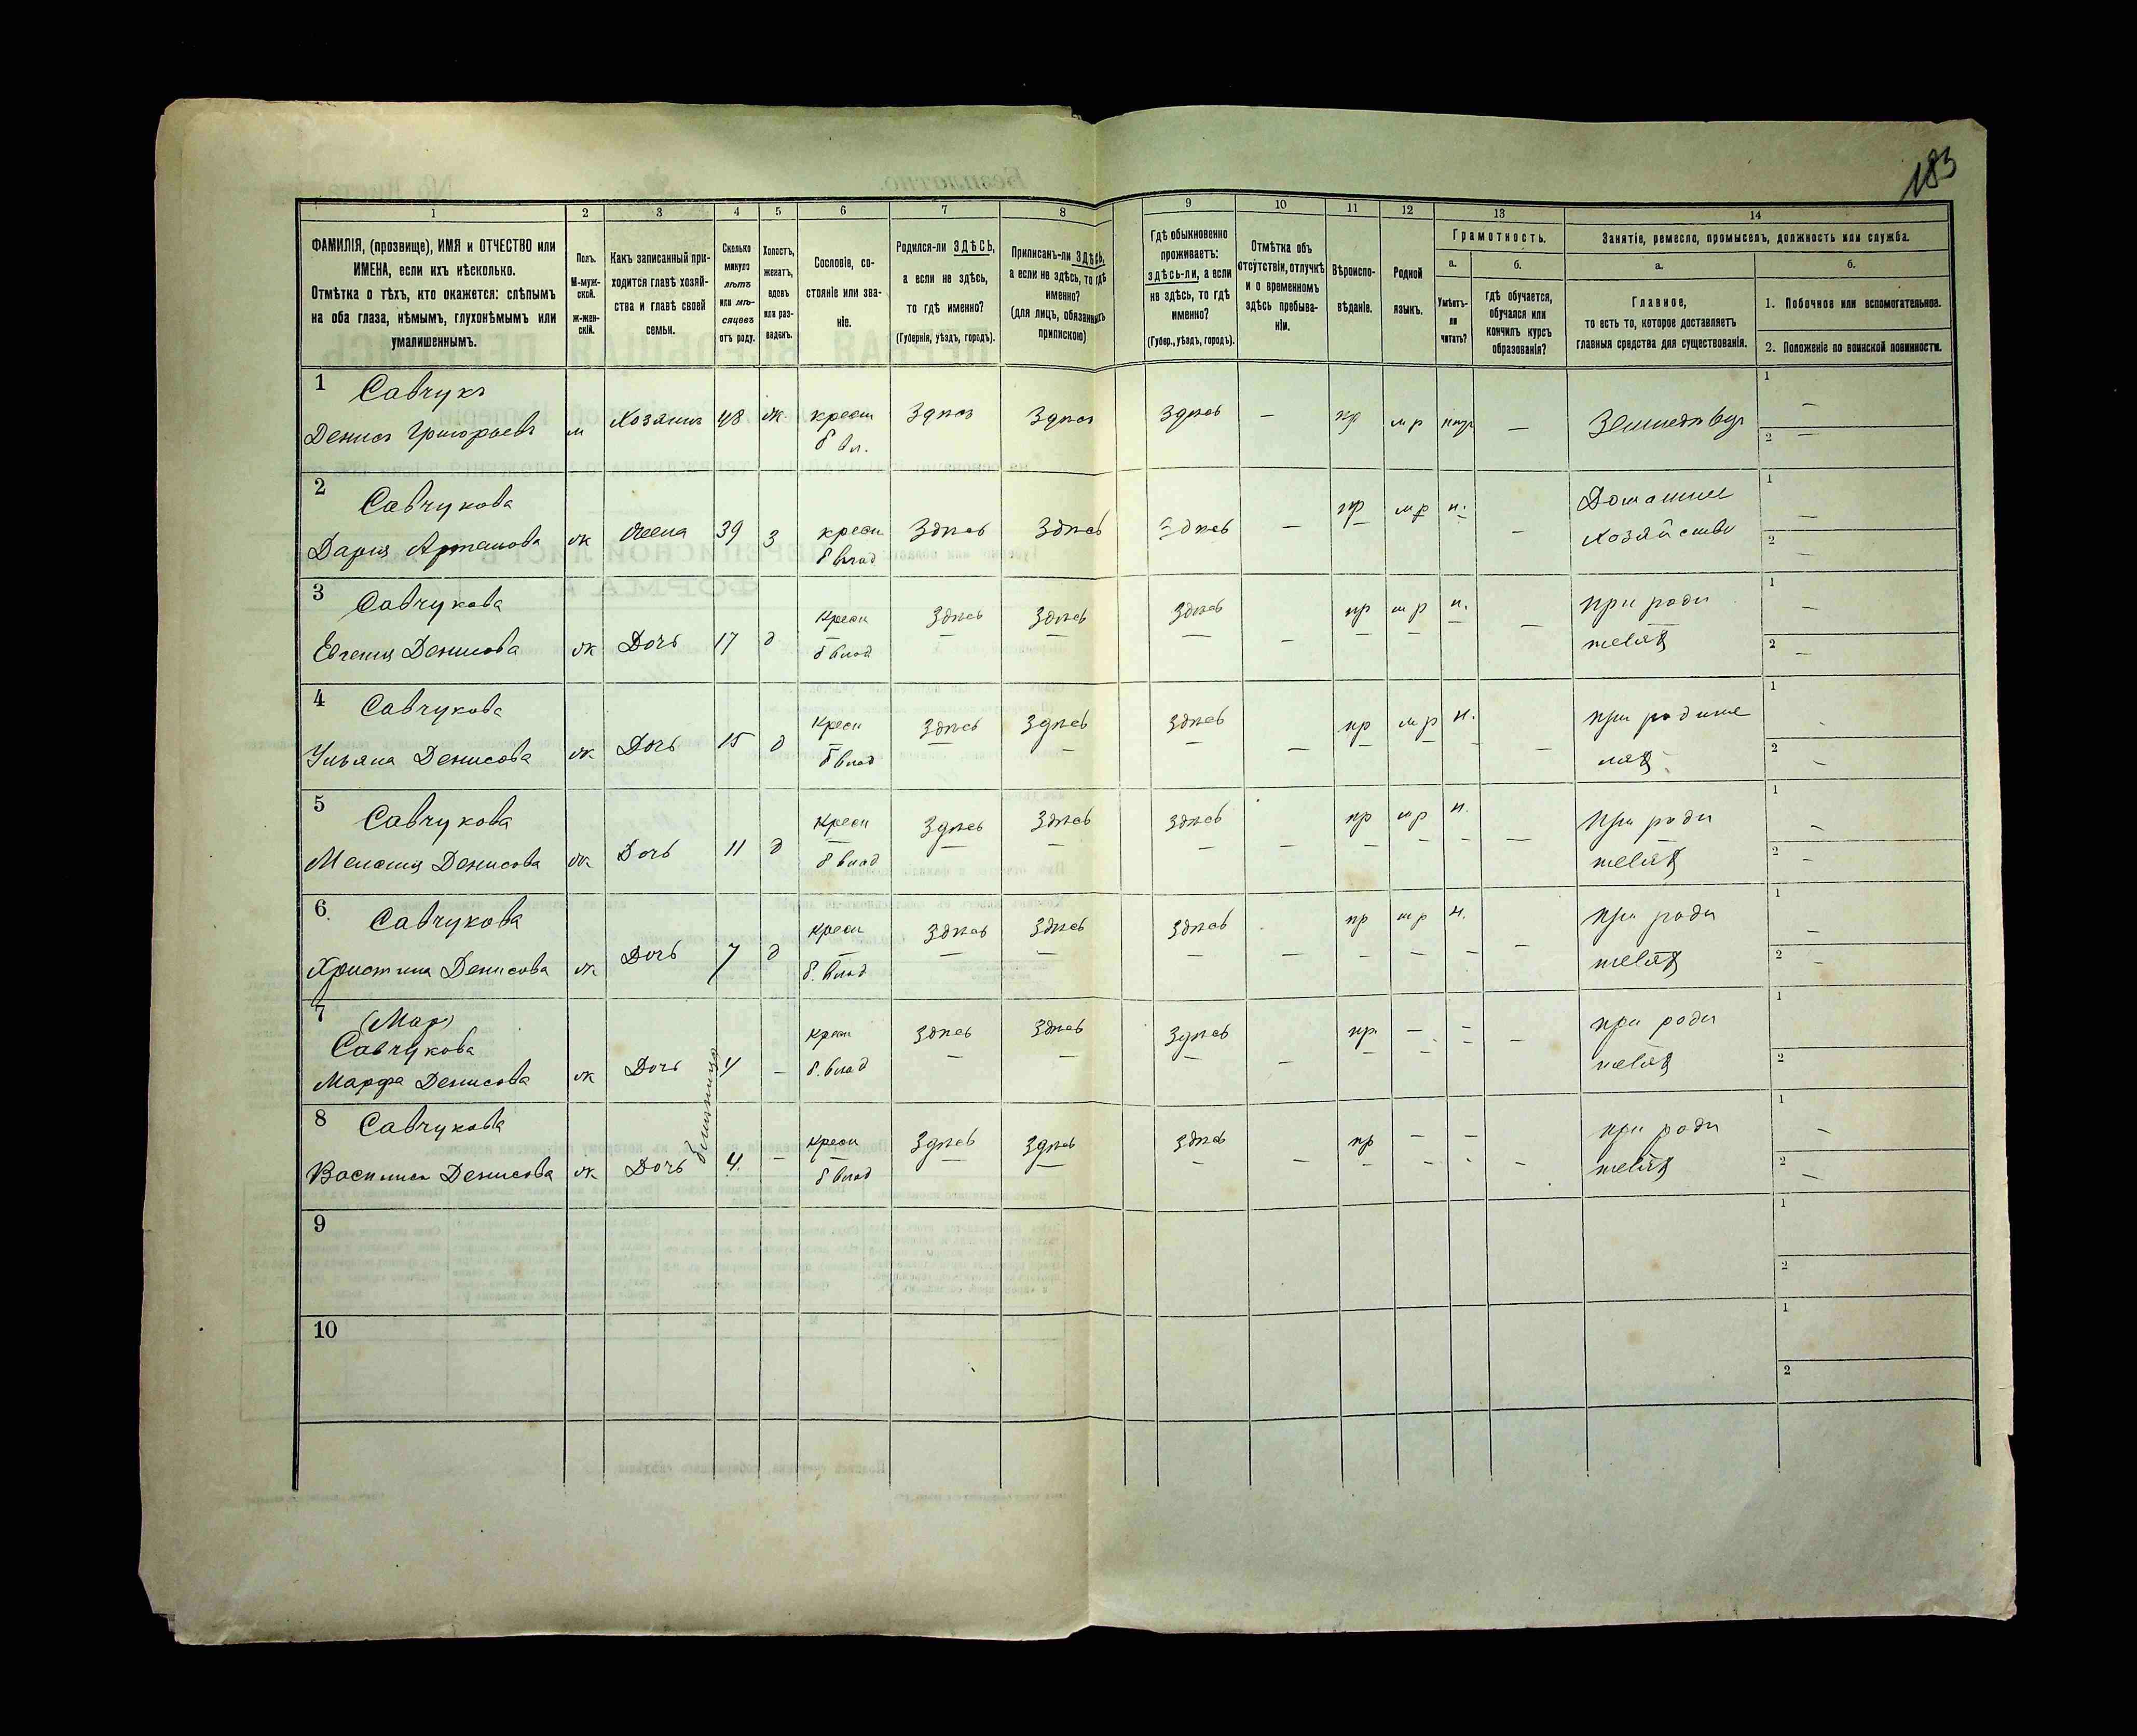 183
1 2 3 4 5 6 7 8 9 10 11 12 13 14
ФАМИЛІЯ, (прозвище), ИМЯ и ОТЧЕСТВО или
ИМЕНА, если ихъ нѣсколько.
Отмѣтка о тѣхъ, кто окажется: слѣпымъ
на оба глаза, нѣмымъ, глухонѣмымъ или
умалишеннымъ.
Полъ.
М-муж-
ской.
ж-жен-
скій.
Какъ записанный при-
ходится главѣ хозяй-
ства и главѣ своей
семьи.
Сколько
минуло
лѣтъ
или мѣ-
сяцевъ
отъ роду.
Холостъ,
женатъ,
вдовъ
или раз-
веденъ.
Сословіе, со-
стояніе или зва-
ніе.
Родился-ли ЗДѢСЬ,
а если не здѣсь,
то гдѣ именно?
(Губернія, уѣздъ, городъ).
Приписанъ-ли ЗДѢСЬ,
а если не здѣсь, то гдѣ
именно?
(для лицъ, обязанныхъ
припискою)
Гдѣ обыкновенно
проживаетъ:
здѣсь-ли, а если
не здѣсь, то гдѣ
именно?
(Губер., уѣздъ, городъ).
Отмѣтка объ
отсутствіи, отлучкѣ
и о временномъ
здѣсь пребыва-
ніи.
Вѣроиспо-
вѣданіе.
Родной
языкъ.
Грамотность.
а.
Умѣетъ-
ли
читать?
б.
гдѣ обучается,
обучался или
кончилъ курсъ
образованія?
Занятіе, ремесло, промыселъ, должность или служба.
а.
Главное,
то есть то, которое доставляетъ
главныя средства для существованія.
б.
1. Побочное или вспомогательное.
2. Положеніе по воинской повинности.
1 Савчукъ 1 —
Денисъ Григорьевъ м Хозяинъ 48 ж. крест Здѣсь Здѣсь Здѣсь — пр мр —
б вл. 2 —
2 Савчукова Домашнее 1 —
Дарія ж Жена 39 з крест Здѣсь Здѣсь Здѣсь — пр мр н. — хозяйство
б влад 2 —
3 Савчукова крест Здѣсь Здѣсь Здѣсь — пр мр н. — при роди 1 —
Евгенія Денисова ж Дочь 17 д б влад 2 —
4 Савчукова крест Здѣсь Здѣсь Здѣсь — пр мр н. — 1
Ульяна Денисова ж Дочь 15 д б влад 2 —
5 Савчукова крест Здѣсь Здѣсь Здѣсь пр мр н. — При роди 1 —
Меланія Денисова ж Дочь 11 д б влад 2 —
6. Савчукова крест Здѣсь Здѣсь Здѣсь — пр мр н. — При роди 1 —
Христина Денисова ж Дочь 7 д б. влад 2 —
7 (Мар)
Савчукова крест Здѣсь Здѣсь Здѣсь — пр. — — — при роди 1
Марфа Денисова ж Дочь 4 — б. влад 2
близнецы
8 Савчукова крест Здѣсь Здѣсь Здѣсь — пр — — — при роди 1 —
Денисова ж Дочь 4. — б влад 2 —
9 1
2
10 1
2